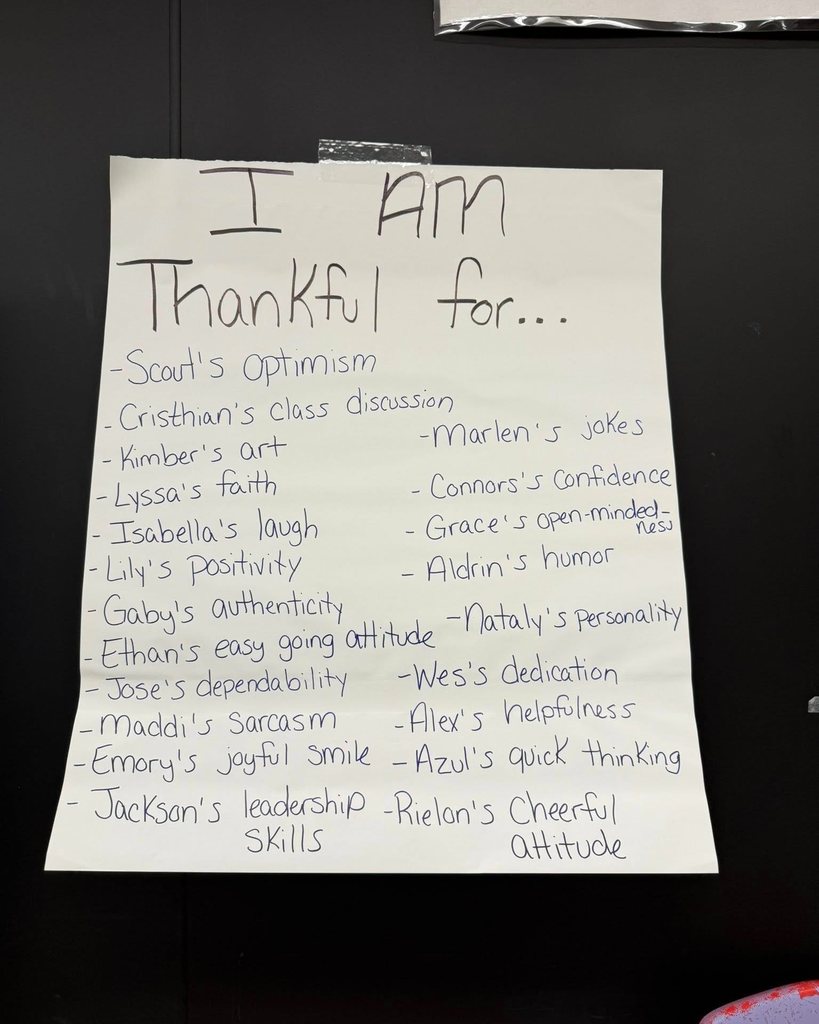 I AM
Thankful for...
-Scout's optimism
- Cristhian's class discussion
- Kimber's art
- Lyssa's faith
- Isabella's laugh
- Lily's positivity
- Gaby's authenticity
- Ethan's easy going attitude
- Jose's dependability
- Maddi's sarcasm
- Emory's joyful smile
- Jackson's leadership
skills
-Marlen's jokes
- Connors's confidence
- Grace's open-minded-
ness
- Aldrin's humor
-Nataly's personality
-Wes's dedication
-Alex's helpfulness
- Azul's quick thinking
-Rielan's Cheerful
attitude